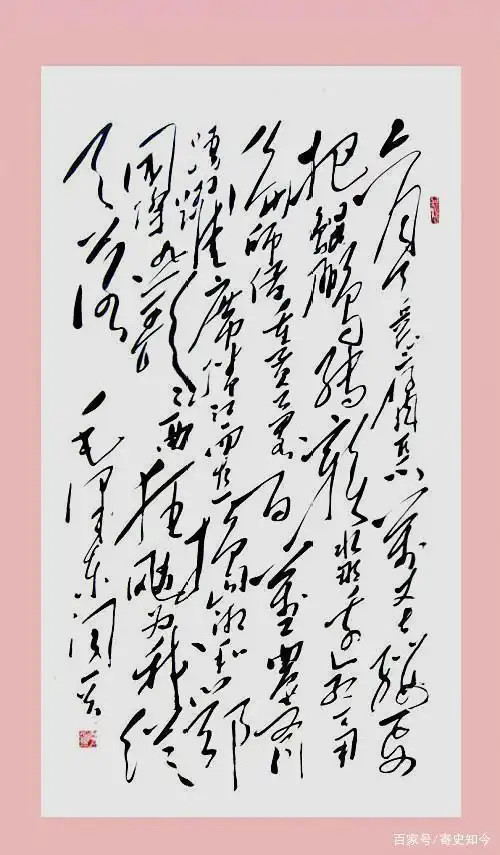 六月天兵征腐恶萬丈长缨要
把鲲鹏缚赣水那边红一角
偏师借重黄公略百萬工農齐
踴躍席捲江西直捣湘和鄂
国际悲歌歌一曲狂飚为我從
天落
毛澤東
百家号/寄史知今